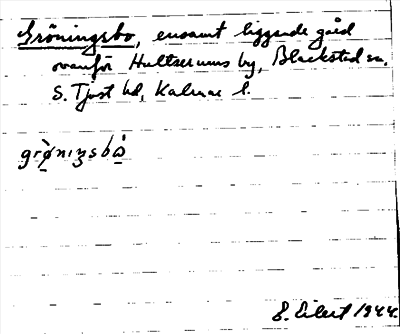 Gröningsbo, ensamt liggande gård
ovanför Hultserums by, Blackstad sn,
S. Tjust hd, Kalmar l.
grø̀nıŋsbò̤
E. Eilert 1944.